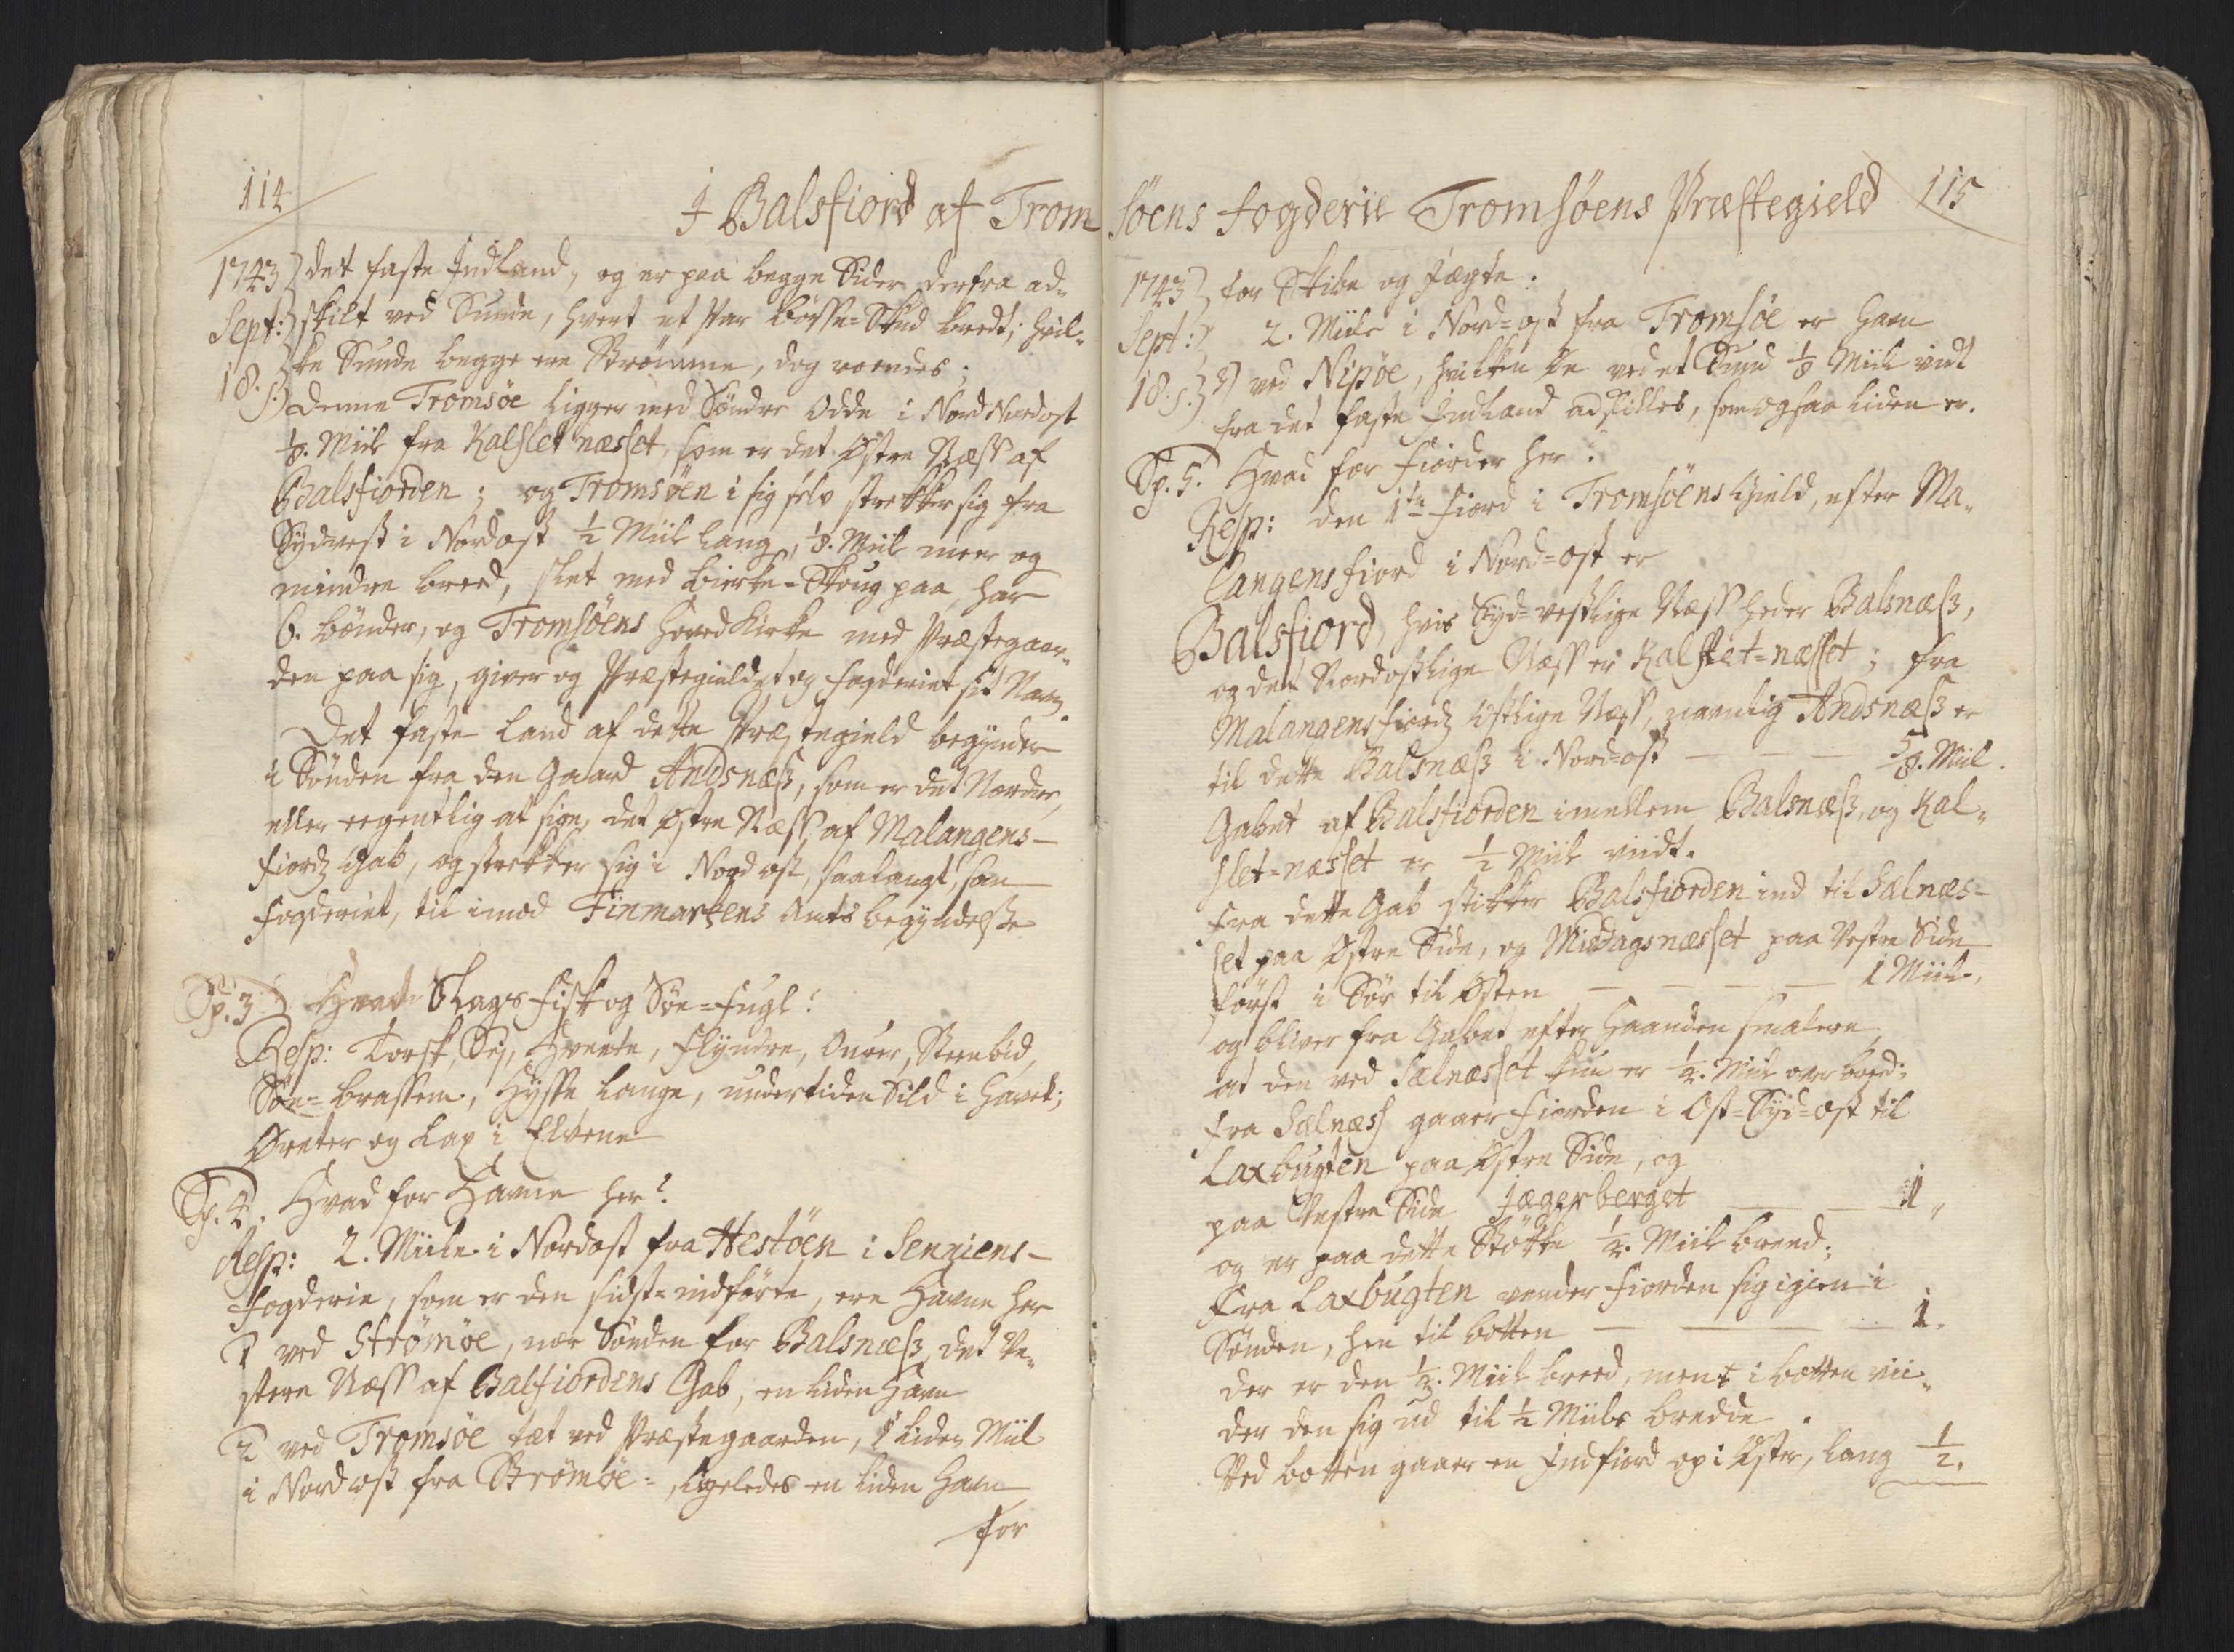 114
I Balsfiord af Trom
1743 det faste Indland, og er paa begge Sider derfra ad„
Sept: skilt ved Sunde, hvert et par Bösse=Skud bredt; hvil„
18. ke Sunde begge ere Strömme, dog roendes;
Denne Tromsöe ligger med Söndre Odde i Nord Nordost
1/8. Miil fra Kalslet næsset, som er det Østre Næss af
Balsfiorden; og Tromsöen i sig selv strekker sig fra
Sydvest i Nordost ½ Miil lang, 1/8. Miil meer og
mindre breed, slet med birke=Skoug paa, har
6. bönder, og Tromsöens Hoved Kirke med Præstegaar„
den paa sig, giver og Præstegieldet og fogderiet sit Navn.
Det faste Land af dette Præstegield begynder
i Sönden fra den Gaard Andsnæß, som er det Nordre,
eller eegentlig at sige, det Østre Næss af Malangens-
fiords Gab, og strekker sig i Nordost, saalangt, som
fogderiet, til imod Finmarkens Amts begyndelse
Sp. 3. Hvad Slags fisk og Söe=fugl?
Resp: Torsk, Sej, Hveete, flyndre, Ourer, Steenbid,
Söe=brassem, Hysse Lange, undertiden Sild i Havet;
Øreter og Lax i Elvene
Sp. 4. Hvad for Havne her?
Resp: 2. Miile i Nordost fra Hestöen i Senniens-
fogderie, som er den sidst=indförte, ere Havne her
1 ved Strömöe, nær Sönden for Balsnæß, det Ve„
stere Næss af Balsfiordens Gab, en liden Havn
2 ved Tromsöe tæt ved Præstegaarden, 1 liden Miil
i Nordost fra Strömöe=, ligeledes en liden Havn
for
söens fogderie Tromsöens Præstegield 115
1743 for Skibe og Jægte.
Sept: 2. Miile i Nord=ost fra Tromsöe er Havn
18. 3) ved Nipöe, hvilken Øe ved et Sund 1/8 Miil viidt
fra det faste Indland adskilles, som ogsaa liden er.
Sp. 5. Hvad for fiorder her?
Resp: den 1te fiord i Tromsöens Gield, efter Ma„
langens fiord i Nord=ost er
Balsfiord, hvis Syd=vestlige Næss heder Balsnæß,
og det Nordostlige Næss er Kalslet=næsset; fra
Malangens fiords Østlige Næss, navnlig Andsnæß er
til dette Balsnæß i Nord=ost — — — 5/8. Miil.
Gabet af Balsfiorden imellem Balsnæß, og Kal„
slet=næsset er ½ Miil viidt.
fra dette Gab stikker Balsfiorden ind til Sælnæs=
set paa Østre Side, og Middagsnæsset paa Vestre Side
först i Sör til Østen — — — — 1 Miil.
og bliver fra Gabet efter Haanden smalere,
at den ved Sælnæsset kun er ¼. Miil over breed;
fra Sælnæss gaaer fiorden i Ost=Syd=ost til
Laxbugten paa Østre Side, og
paa Vestre Side Jægerberget — — 1 „
og er paa dette Stökke ¼. Miil breed;
fra Laxbugten vender fiorden sig igien i
Sönden, hen til botten — — — 1.
der er den ¼. Miil breed, ment i botten vii„
der den sig ud til ½ Miils bredde.
Ved botten gaaer en Indfiord op i Øster, lang ½.